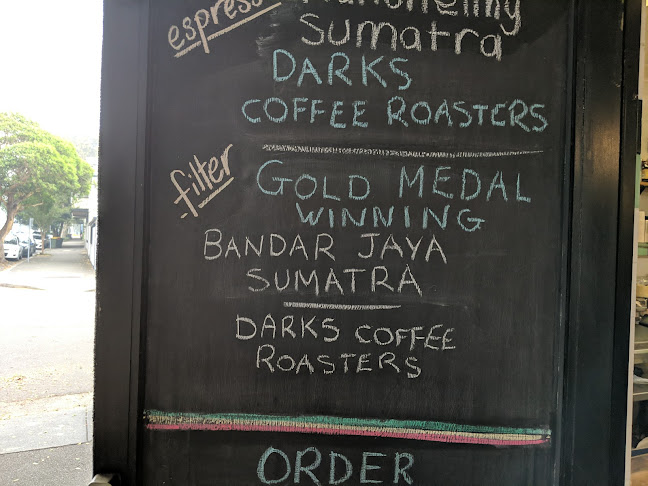 espresso
Sumatra
DARKS
COFFEE ROASTERS
filter
GOLD MEDAL
WINNING
BANDAR JAYA
SUMATRA
DARKS COFFEE
ROASTERS
ORDER